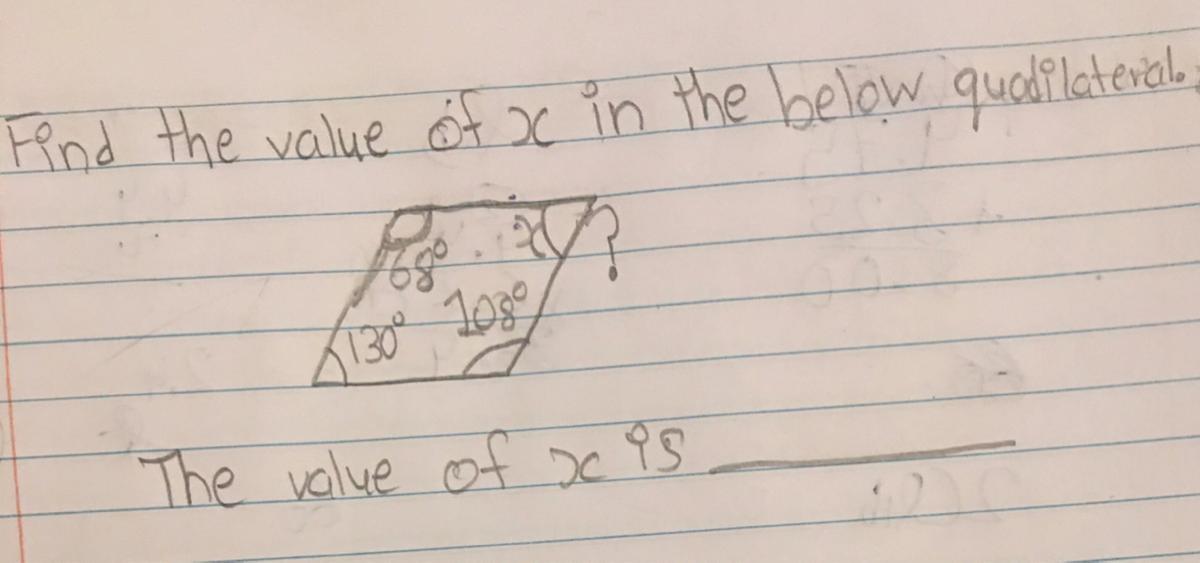 Find the value of x in the below quadilateral.
68° x ?
130° 108°
The value of x is